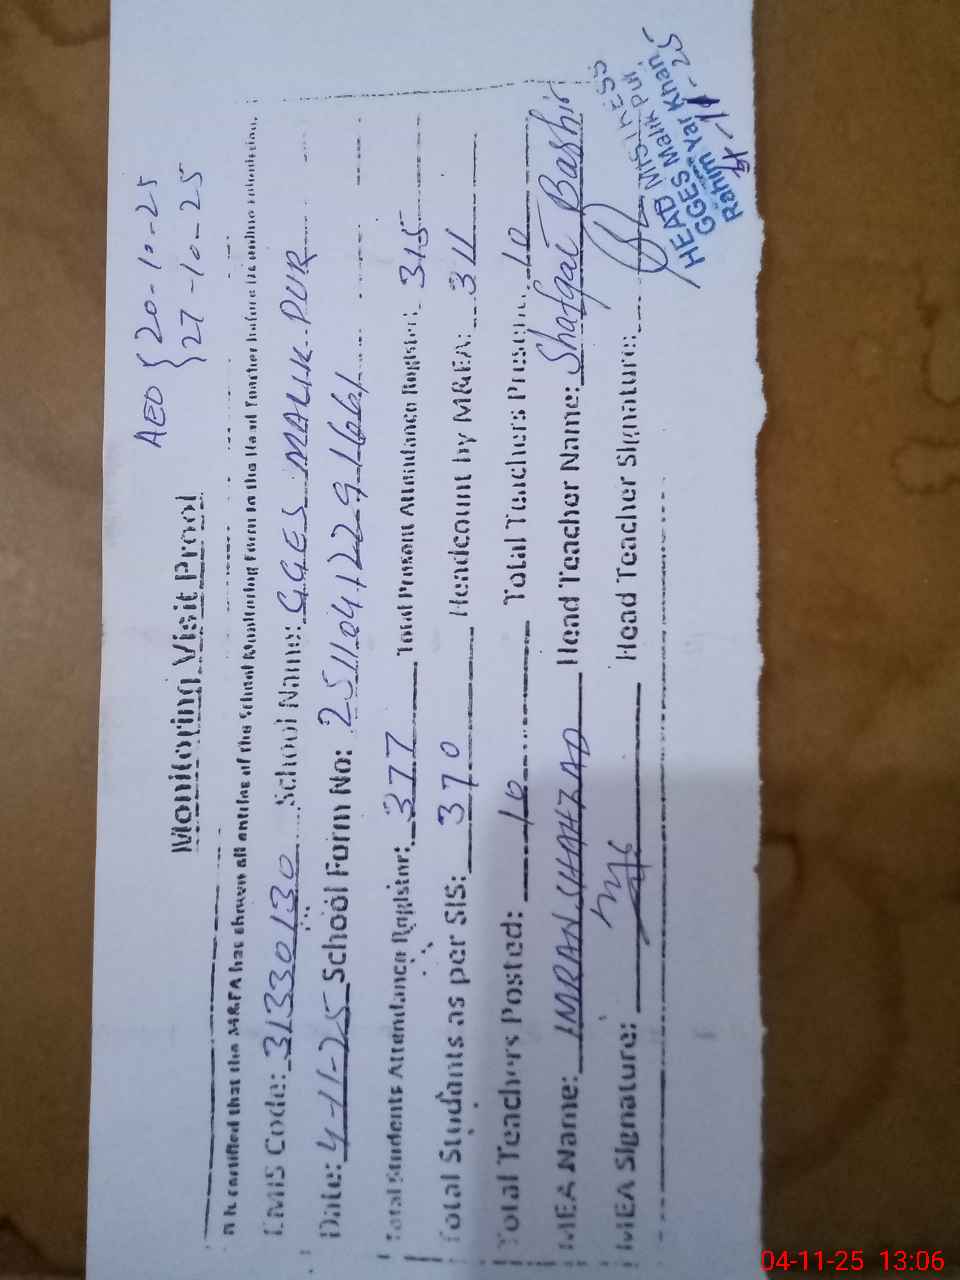 AEO { 20-10-25
27-10-25
Monitoring Visit Proof
It is certified that the M&EA has shown all entries of the School Monitoring Form to the Head Teacher before its online submission.
EMIS Code: 31330130 School Name: GGES MALIK PUR
Date: 4-11-25 School Form No: 251104122291661
Total Students Attendance Register: 377 Total Present Attendance Register: 315
Total Students as per SIS: 370 Headcount by M&EA: 311
Total Teachers Posted: 10 Total Teachers Present: 10
MEA Name: IMRAN SHAHZAD Head Teacher Name: Shafqat Bashir
MEA Signature: Head Teacher Signature:
HEAD MISTRESS
GGES Malik Pur
Rahim Yar Khan
4-11-25
04-11-25 13:06